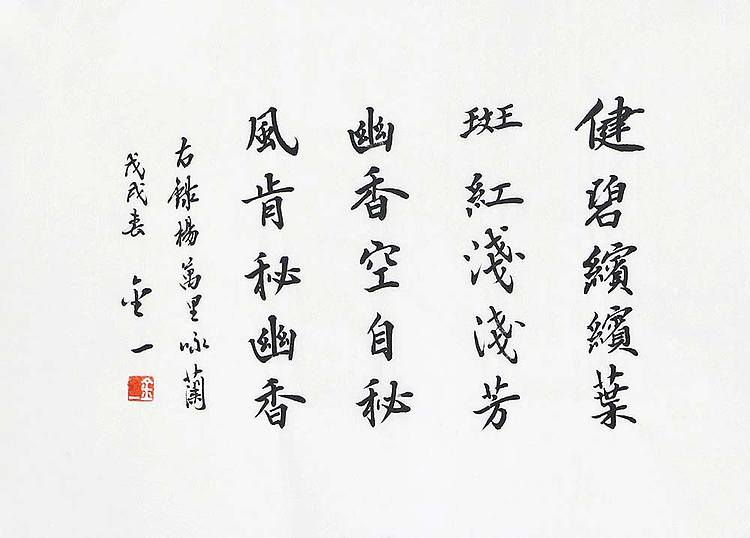 健碧繽繽葉
斑紅淺淺芳
幽香空自秘
風肯秘幽香
右錄楊萬里咏蘭
戊戌春 金一